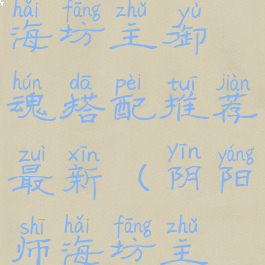 hǎi fāng zhǔ yù
海坊主御
hún dā pèi tuī jiàn
魂搭配推荐
zuì xīn yīn yáng
最新（阴阳
shī hǎi fāng zhǔ
师海坊主